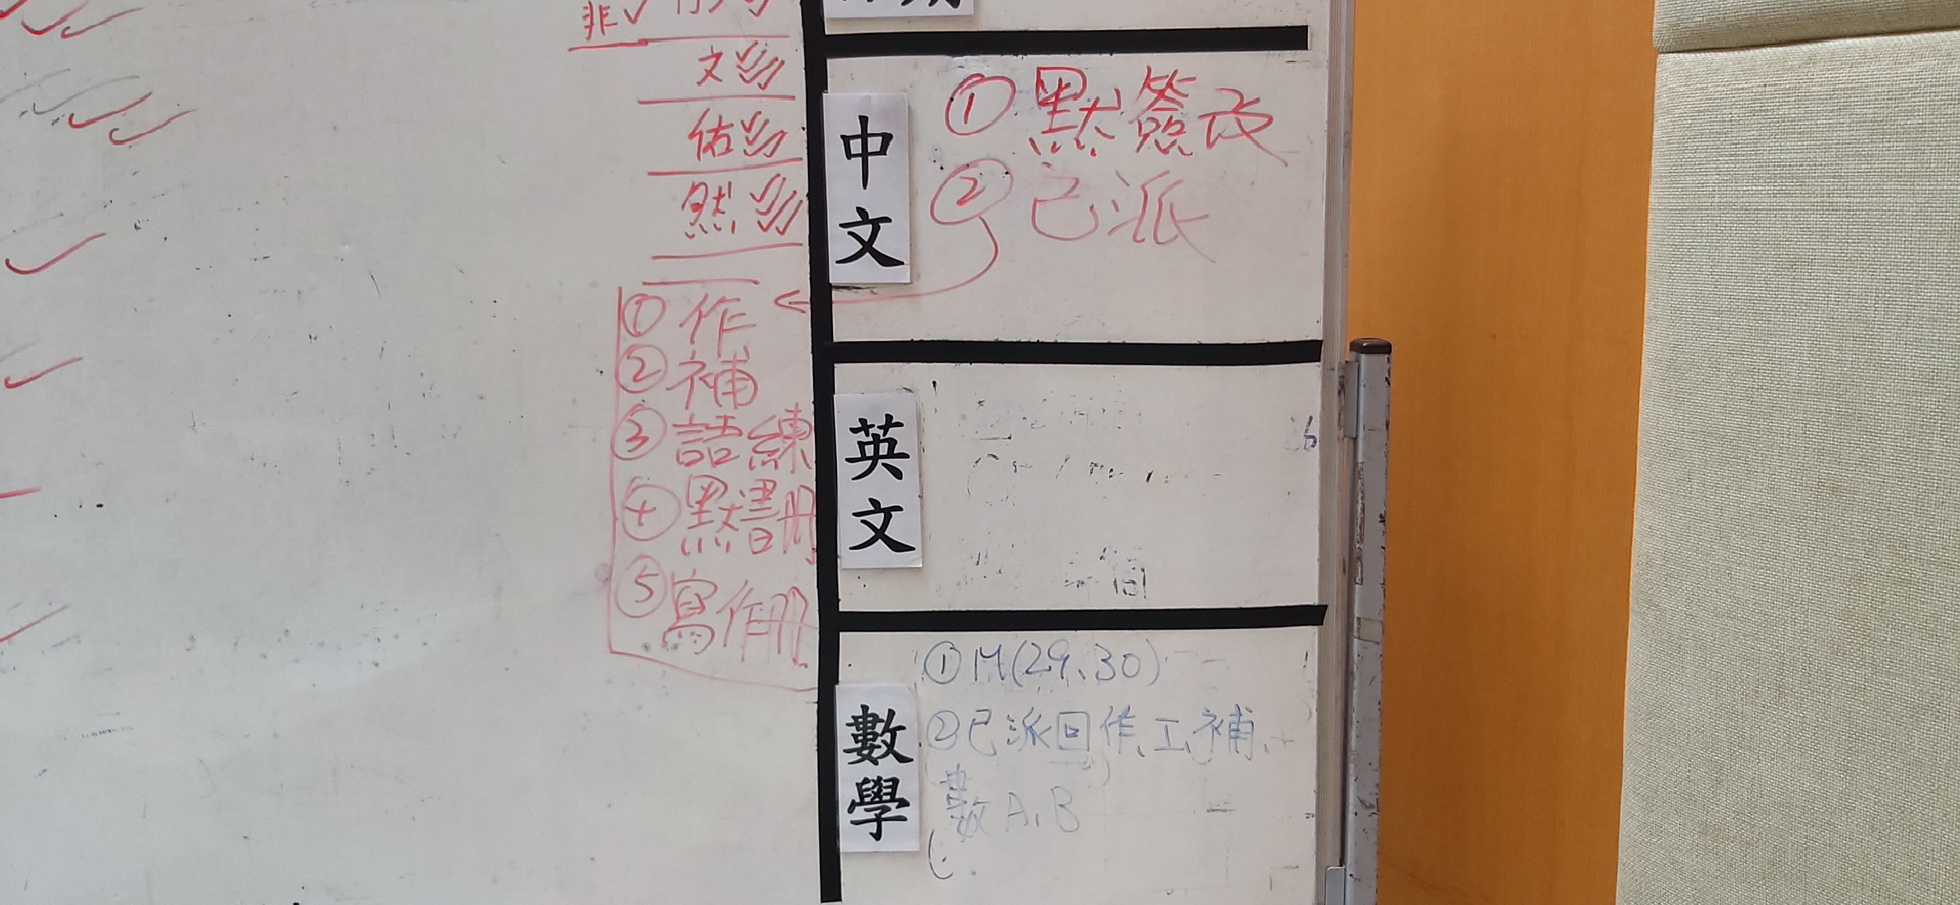 非
文
佑
然
①作
②補
③語練
④默書冊
⑤寫作冊
中文
①默簽改
②已派
英文
數學
①M(29、30)
②已派回作、工、補、
數A、B